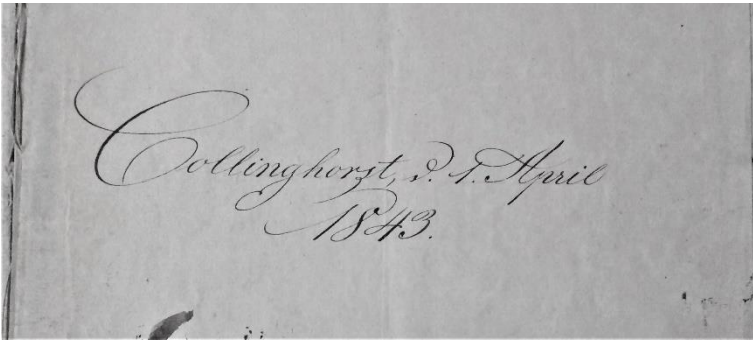 Collinghorst, d. 1. April
1843.